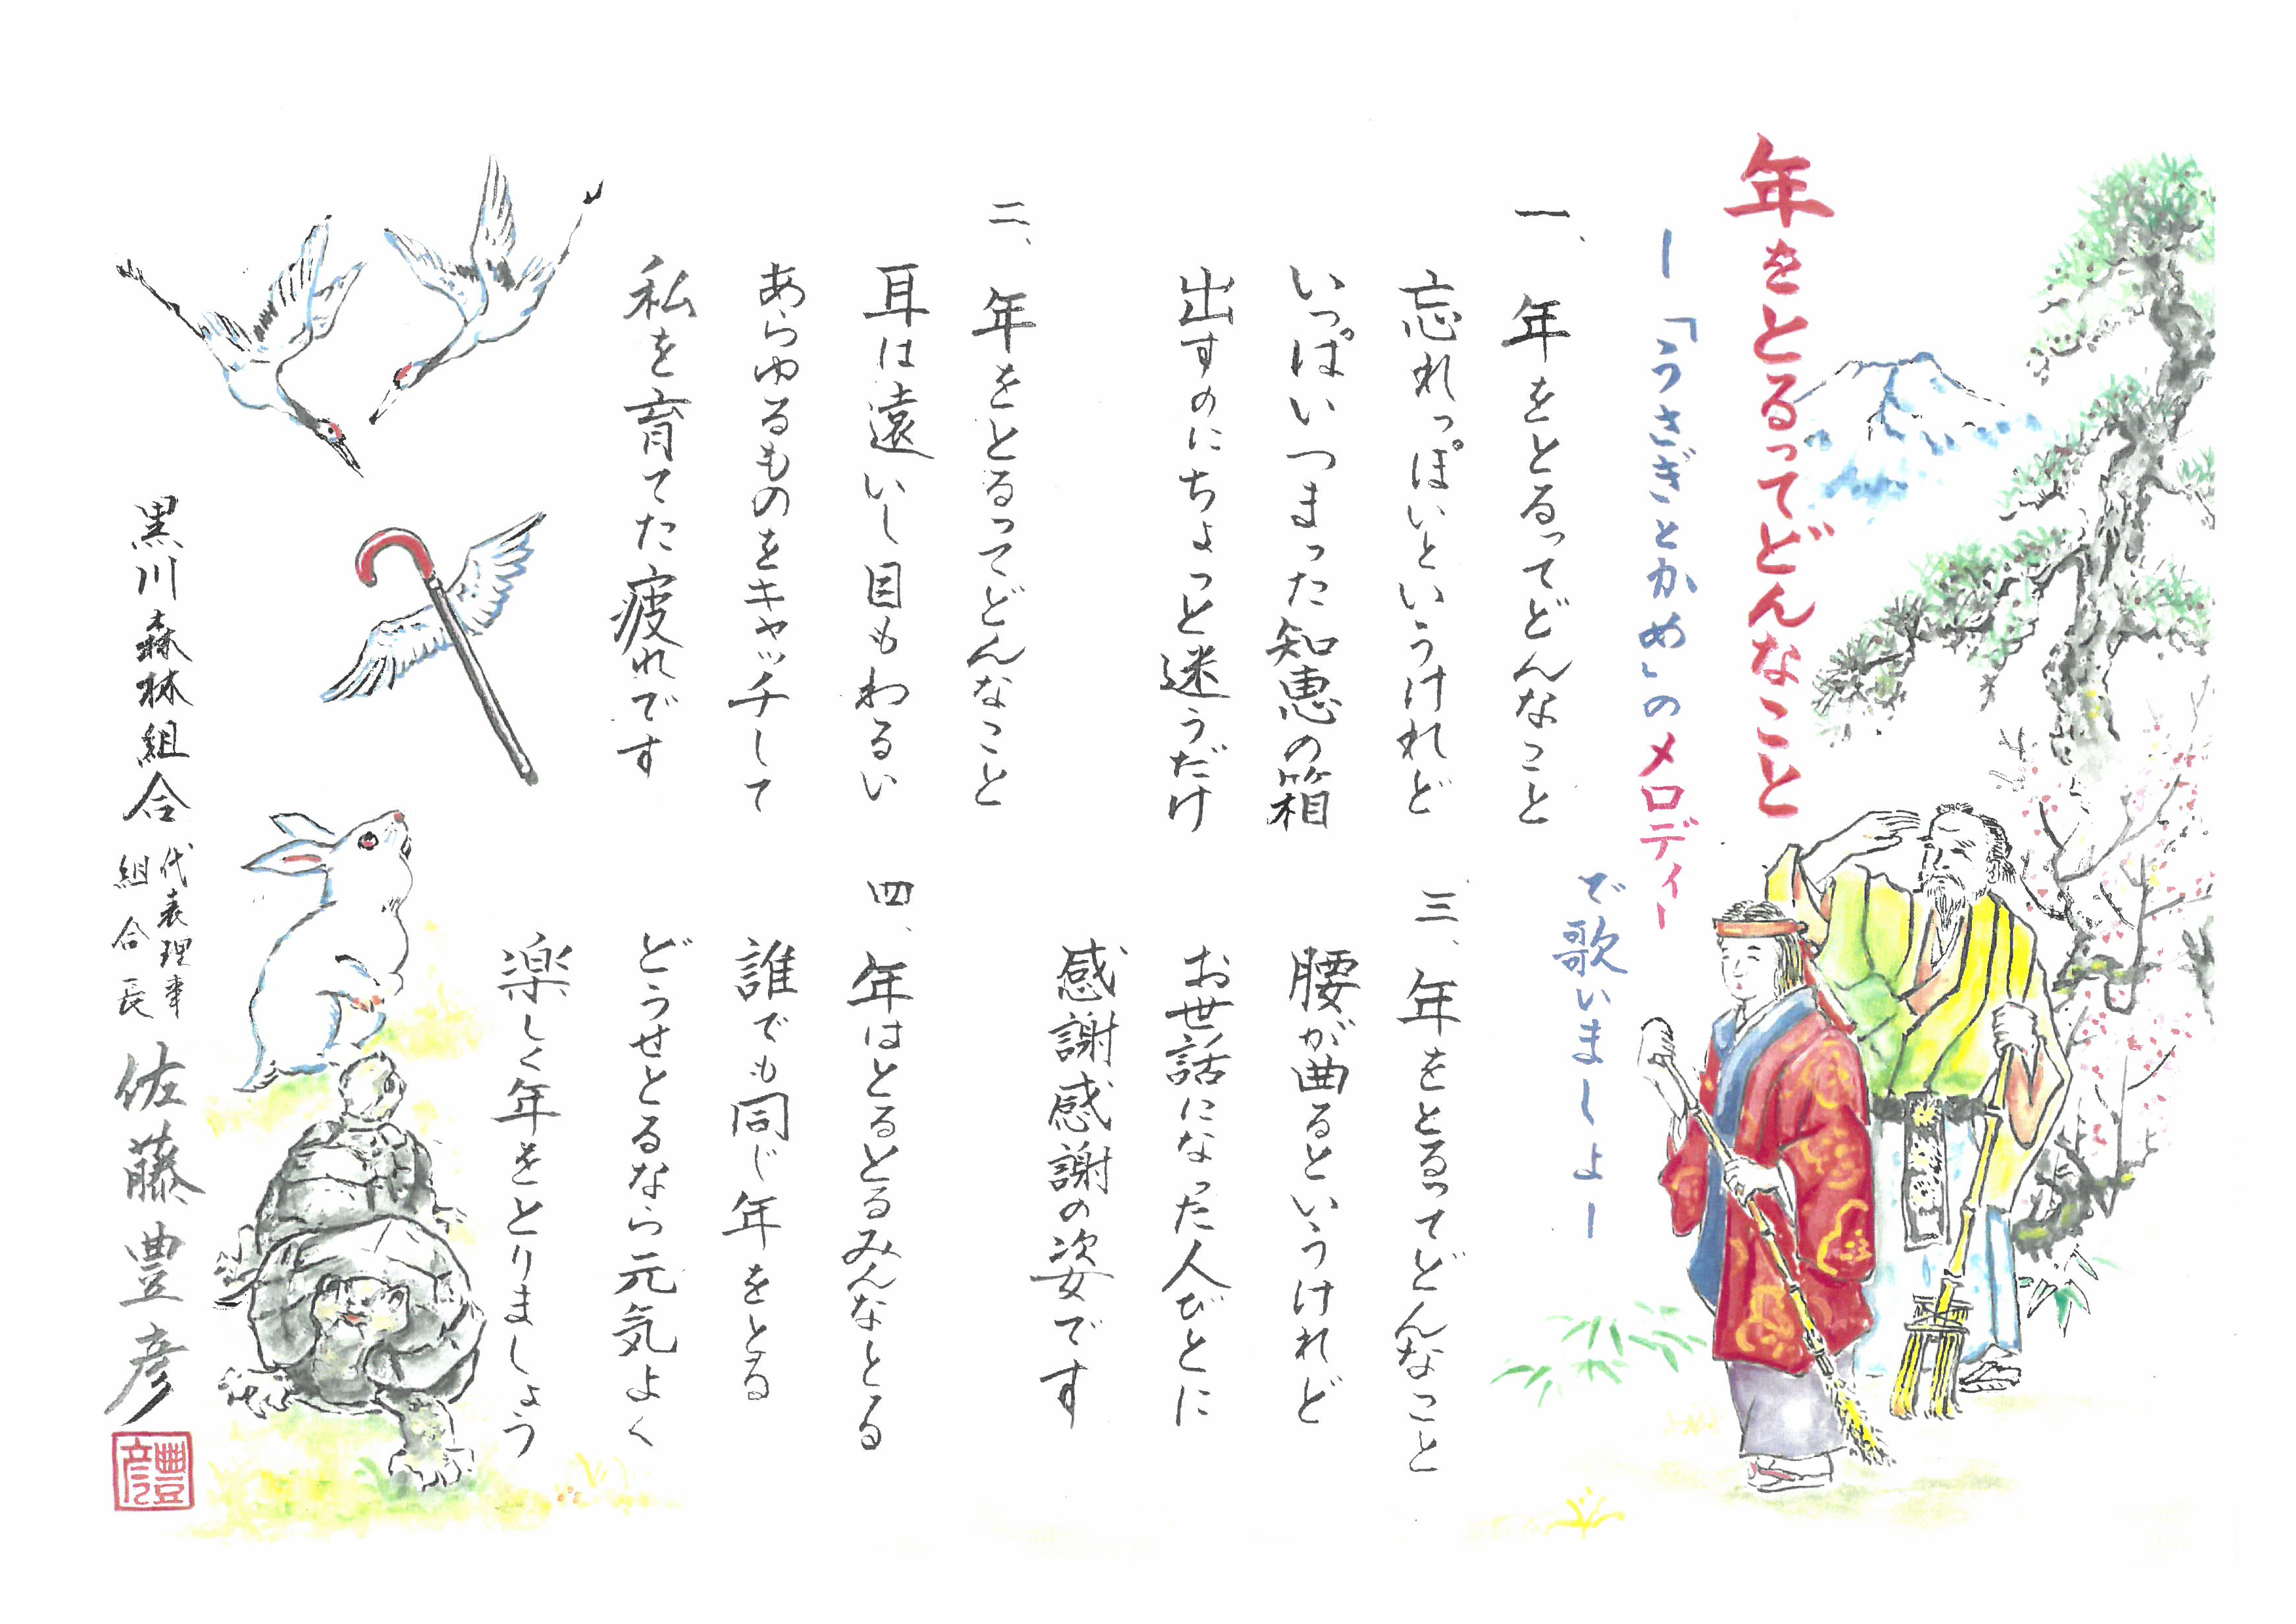 年をとるってどんなこと
ー「うさぎとかめ」のメロディー
で歌いましょー
一、年をとるってどんなこと
忘れっぽいというけれど
いっぱいつまった知恵の箱
出すのにちょっと迷うだけ
二、年をとるってどんなこと
耳は遠いし目もわるい
あらゆるものをキャッチして
私を育てた疲れです
三、年をとるってどんなこと
腰が曲るというけれど
お世話になった人びとに
感謝感謝の姿です
四、年はとるとるみんなとる
誰でも同じ年をとる
どうせとるなら元気よく
楽しく年をとりましょう
黒川森林組合
代表理事
組合長
佐藤豊彦
豊彦